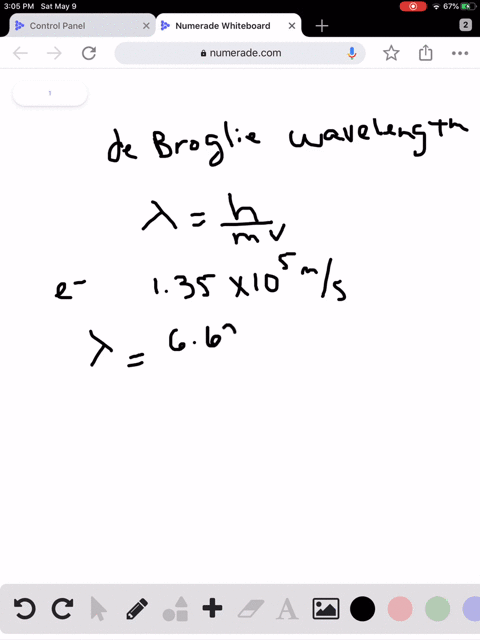 3:05 PM Sat May 9 67%
Control Panel Numerade Whiteboard 2
numerade.com
1
de Broglie wavelength
λ = h/mv
e⁻ 1.35 × 10⁵ m/s
λ = 6.6
A